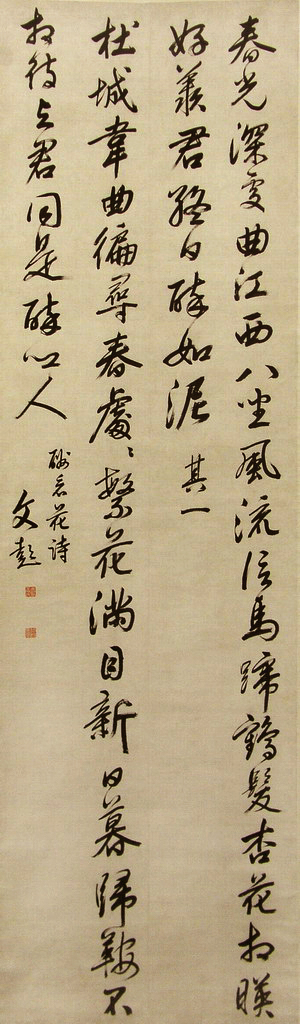 春光深處曲江西八坐風流信馬蹄鶴髮杏花相映
好羡君終日醉如泥 其一
杜城韋曲徧尋春處〻繁花滿目新日暮歸鞍不
相待与君同是醉心人
酬看花詩
文彭